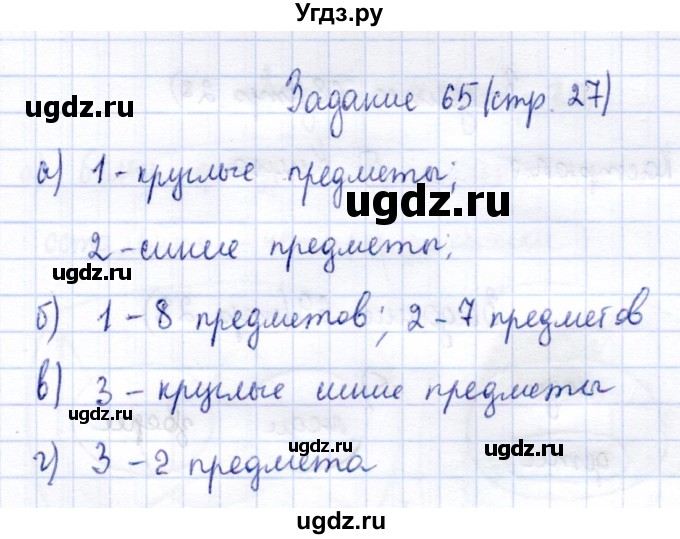 Угдз.ру
Задание 65 (стр. 27)
ugdz.ru
а) 1 - круглые предметы;
ugdz.ru
ugdz.ru
2 - синие предметы;
ugdz.ru
ugdz.ru
б) 1 - 8 предметов; 2 - 7 предметов
в) 3 - круглые синие предметы
ugdz.ru
ugdz.ru
ugdz.ru
г) 3 - 2 предмета
ugdz.ru
ugdz.ru